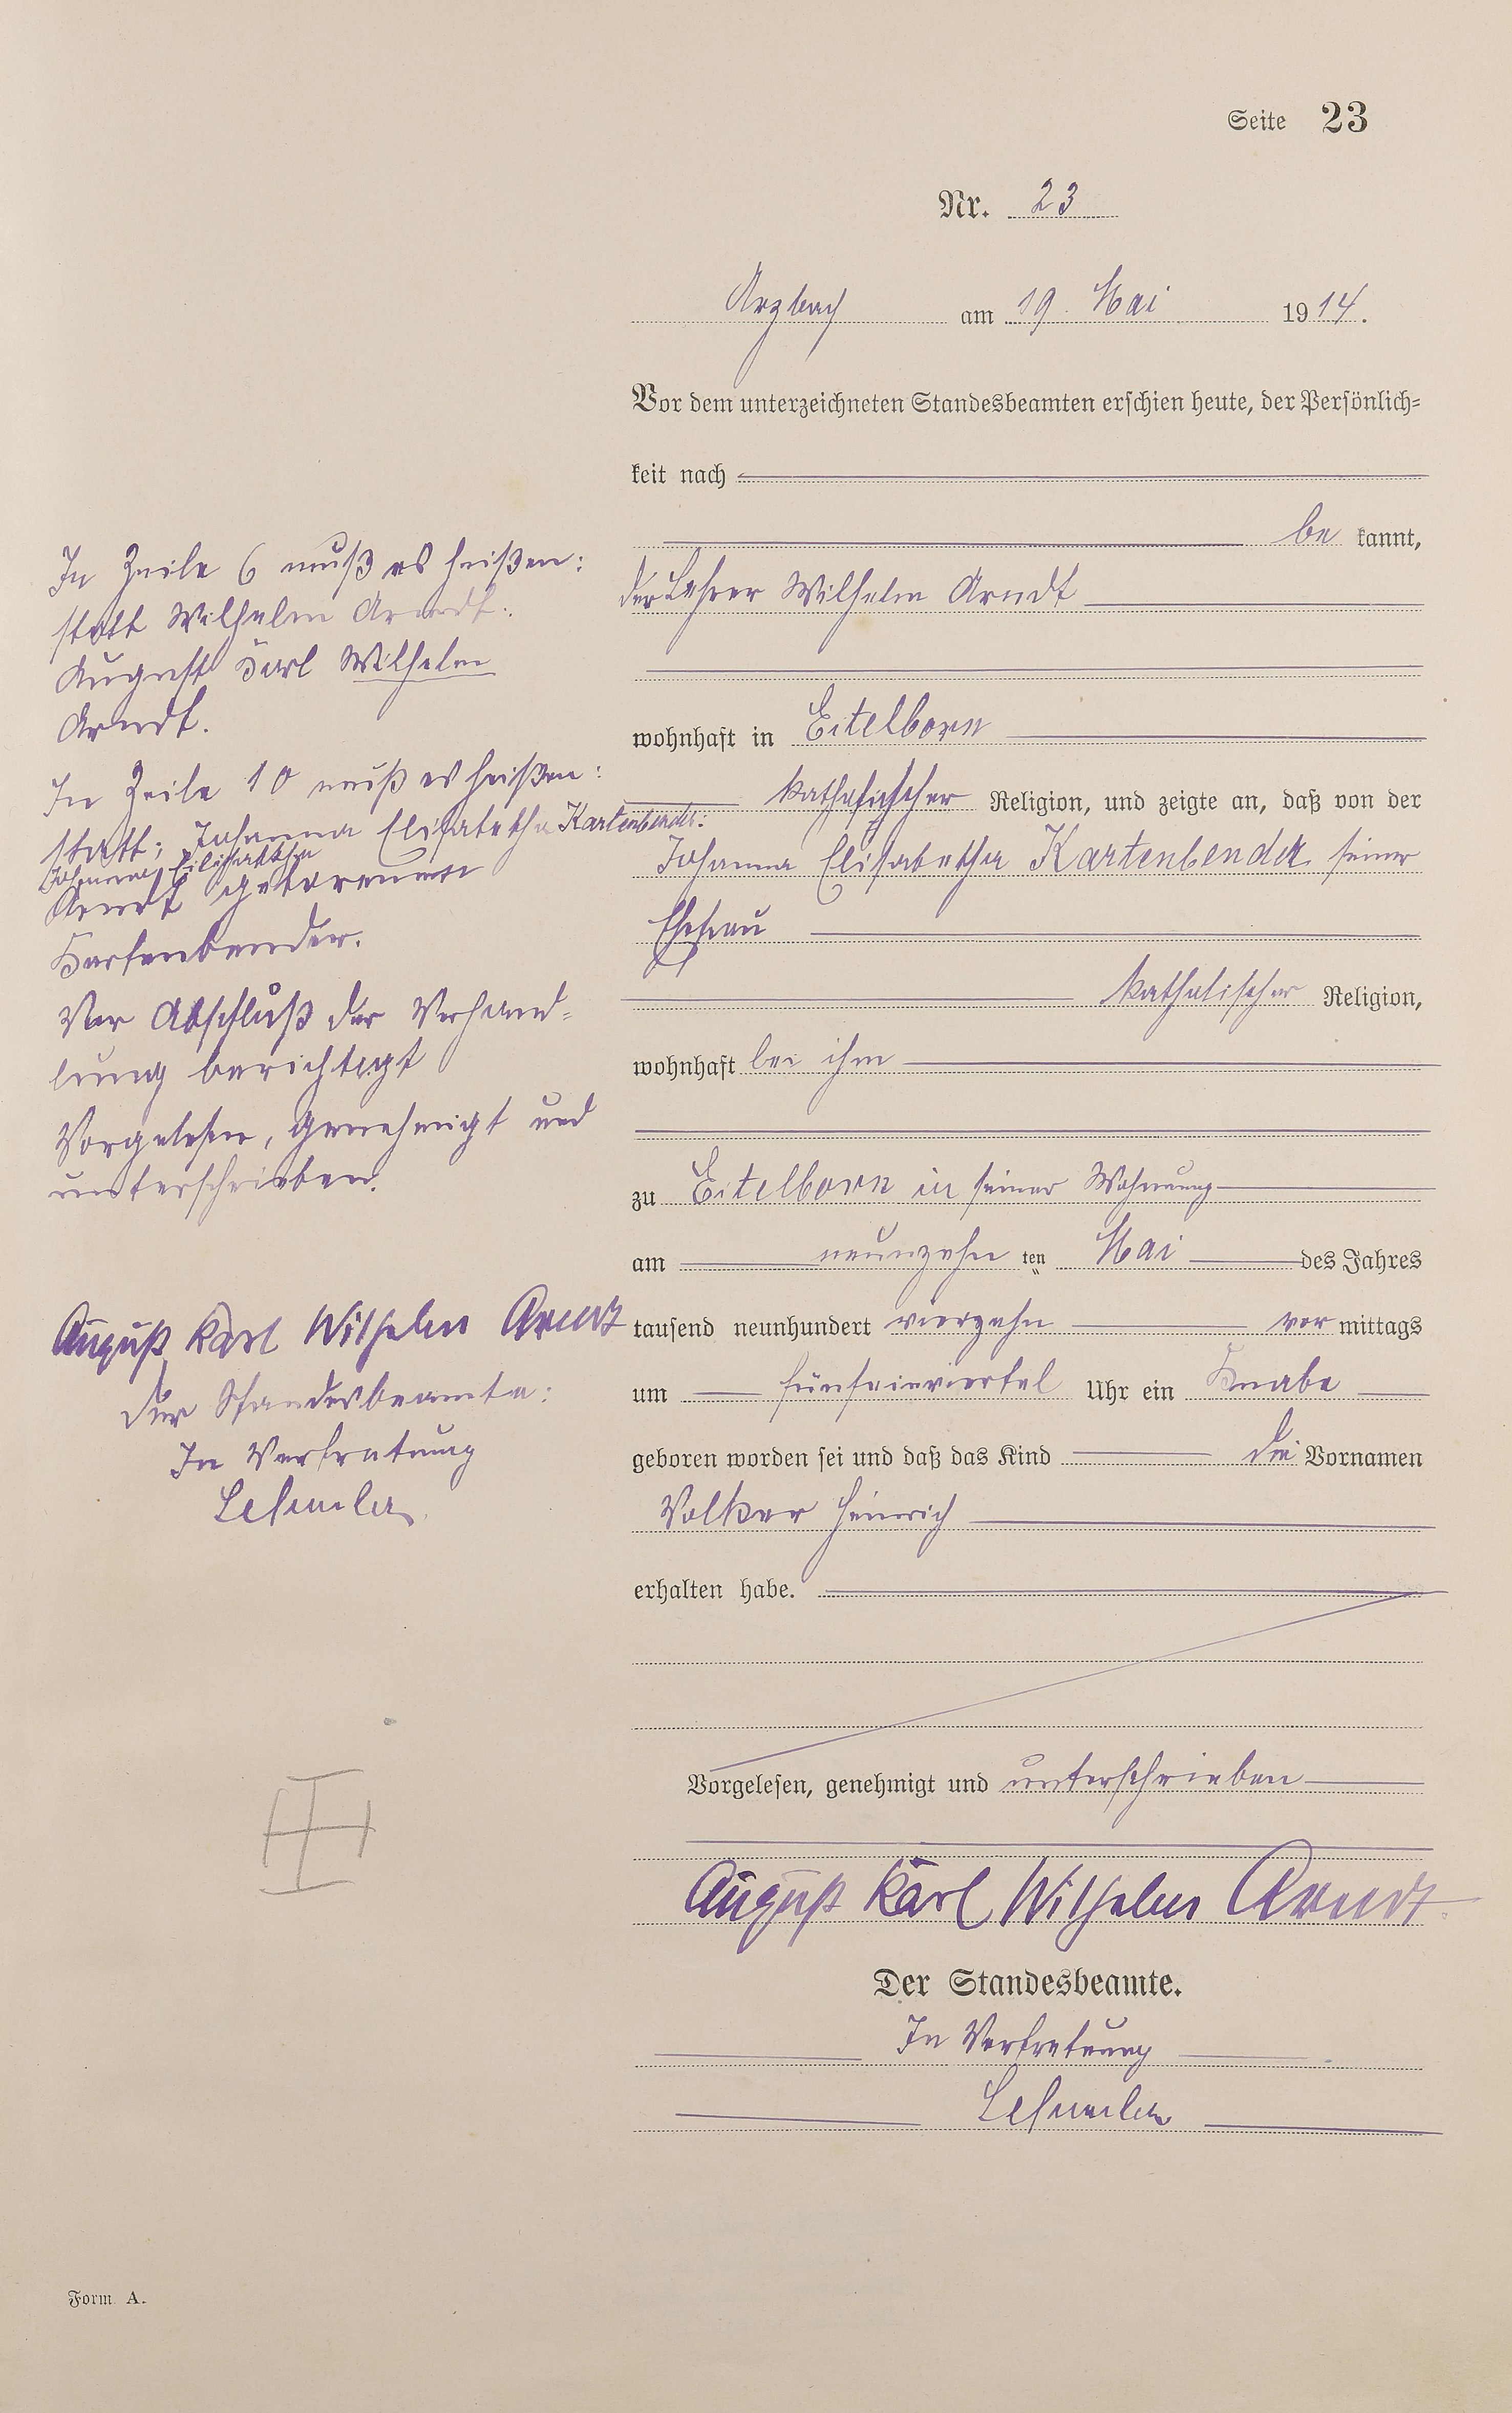 Seite 23
Nr. 23
Arzbach am 19. Mai 1914.
Vor dem unterzeichneten Standesbeamten erschien heute, der Persönlich-
keit nach
be kannt,
der Lehrer Wilhelm Arndt
wohnhaft in Eitelborn
katholischer Religion, und zeigte an, daß von der
Johanna Elisabetha Kartenbender seiner
Ehefrau
katholischer Religion,
wohnhaft bei ihm
zu Eitelborn in seiner Wohnung
am neunzehn ten Mai des Jahres
tausend neunhundert vierzehn vor mittags
um fünfeinviertel Uhr ein Knabe
geboren worden sei und daß das Kind die Vornamen
Volker Heinrich
erhalten habe.
Vorgelesen, genehmigt und unterschrieben
August Karl Wilhelm Arndt
Der Standesbeamte.
In Vertretung
In Zeile 6 muß es heißen:
statt Wilhelm Arndt:
August Karl Wilhelm
Arndt.
In Zeile 10 muß es heißen:
statt: Johanna Elisabetha Kartenbender:
Johanna Elisabetha
Arndt geborenen
Kartenbender.
Vor Abschluß der Verhand-
lung berichtigt
Vorgelesen, genehmigt und
unterschrieben.
August Karl Wilhelm Arndt
Der Standesbeamte:
In Vertretung
Form. A.